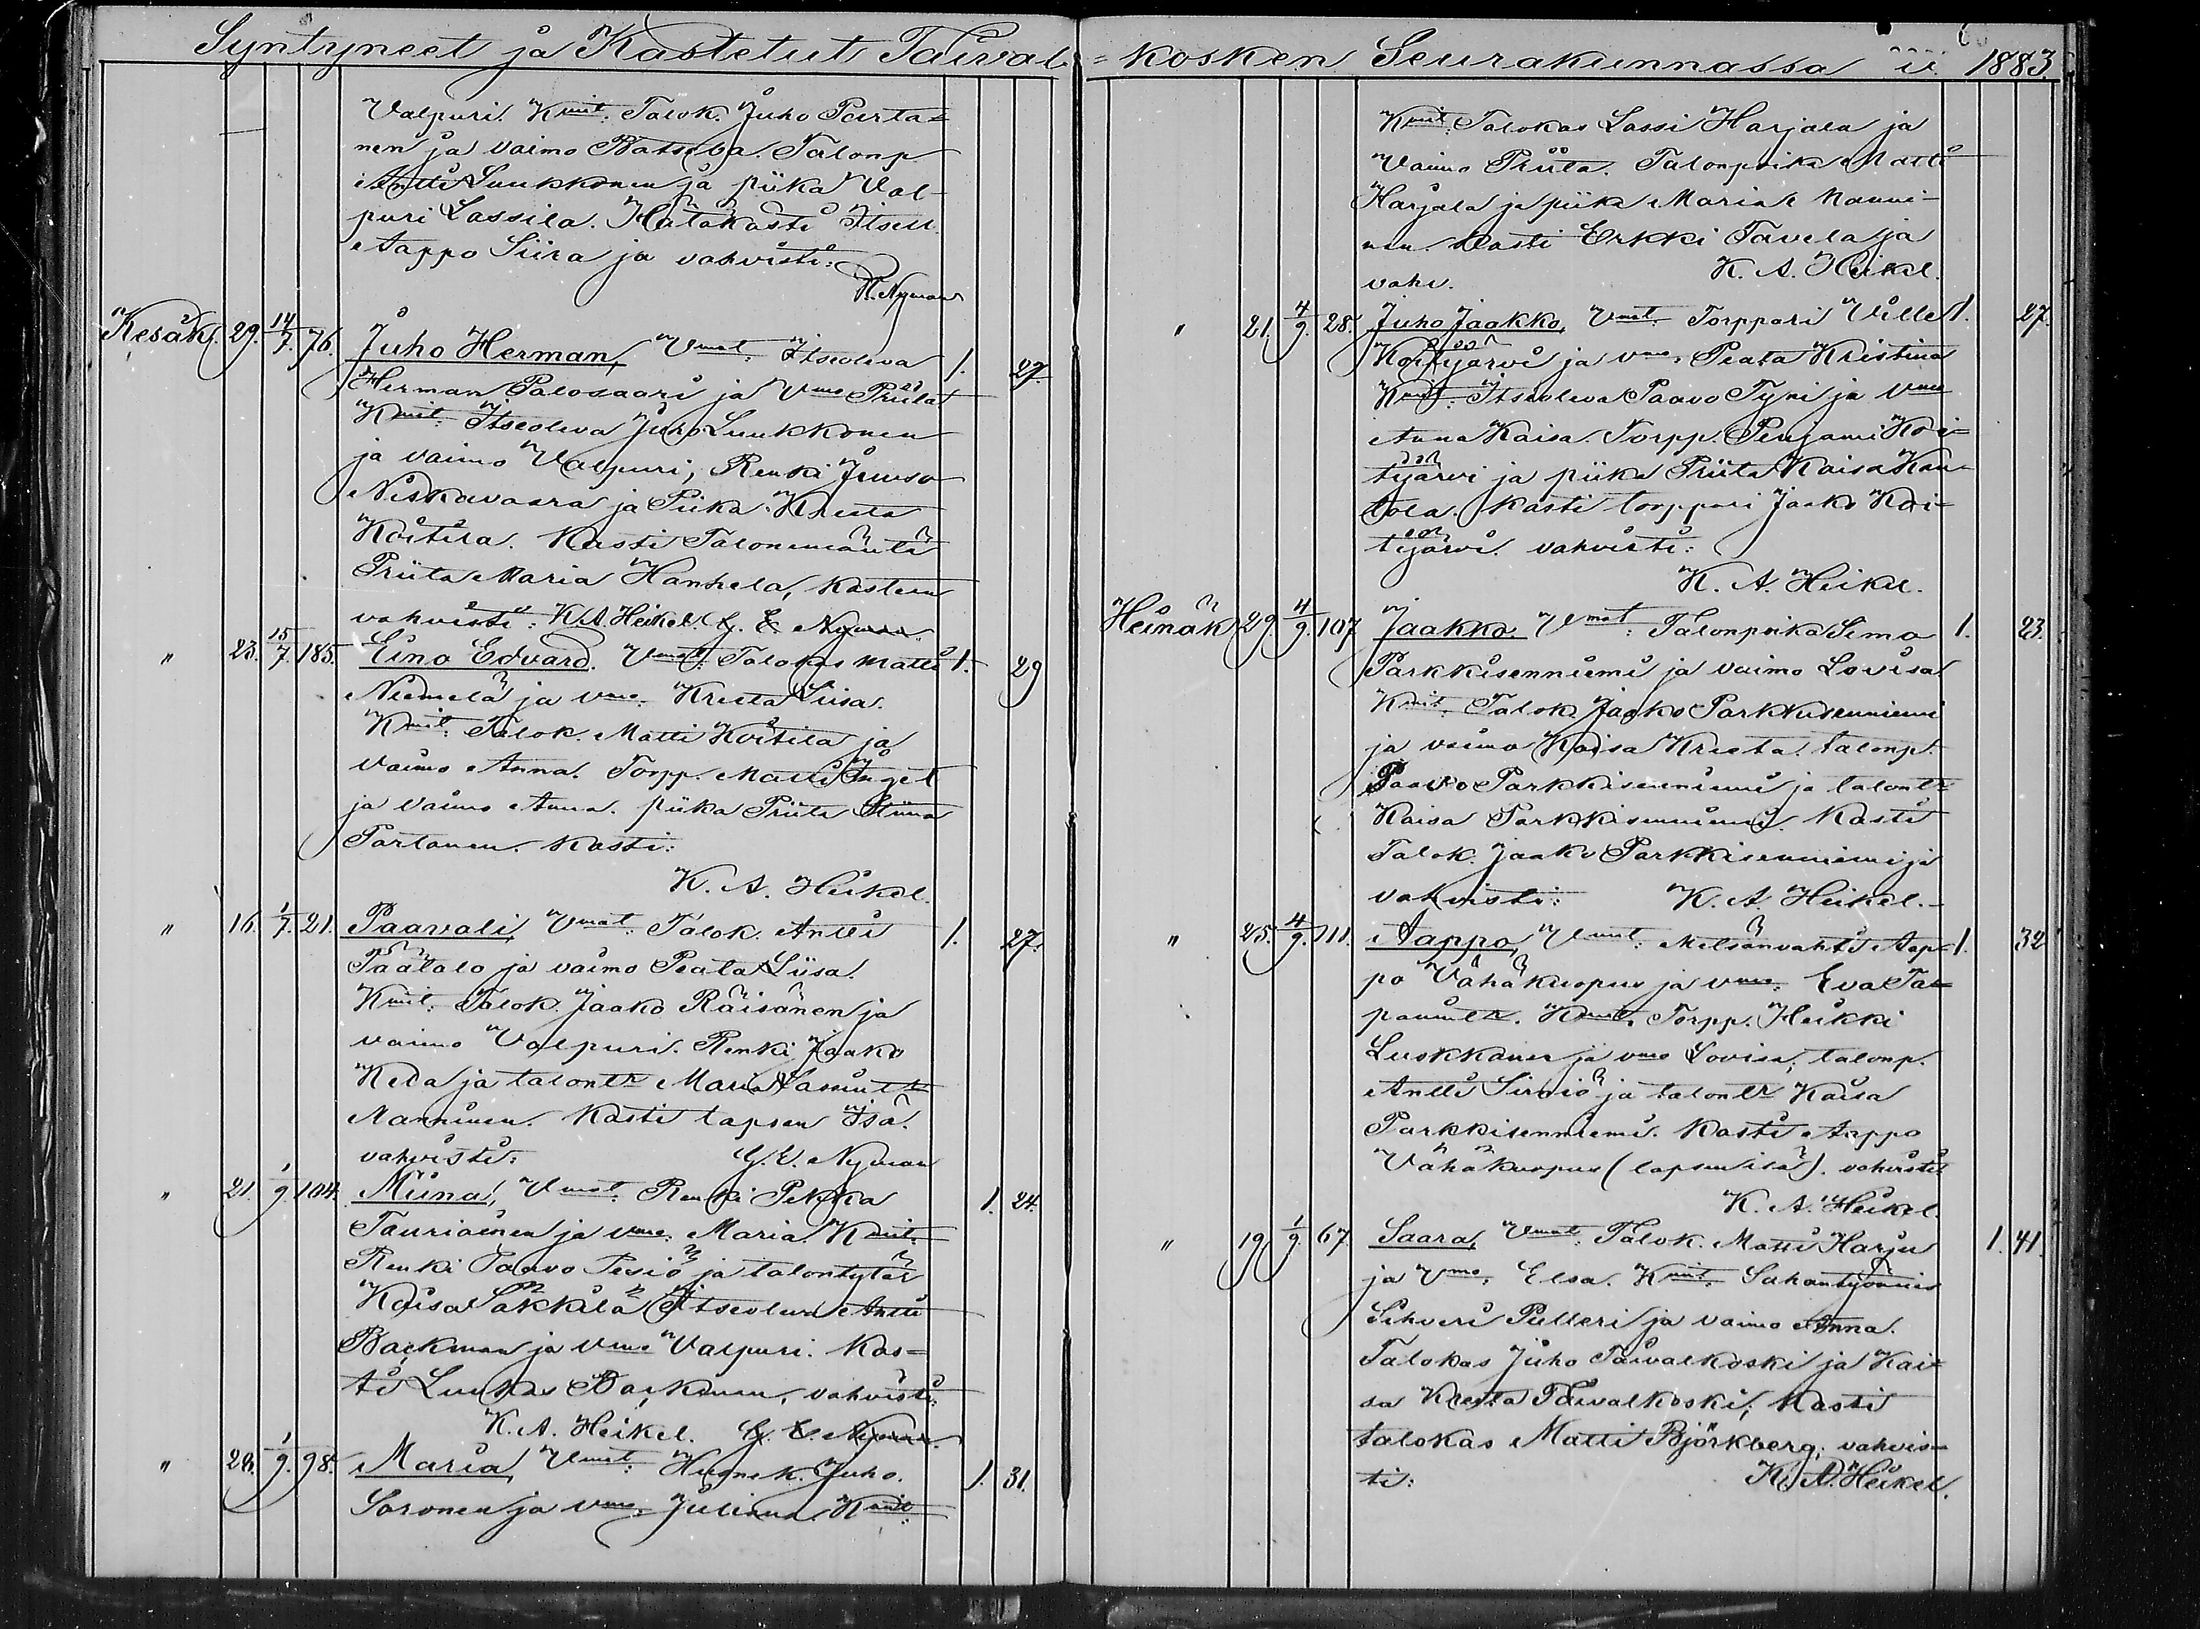 Syntyneet ja Kastetut Taival=kosken Seurakunnassa v. 1883.
Valpuri. Kmit. Talok. Juho Parta=
nen ja vaimo Batseba. Talonp
Antti Luukkonen ja piika Val-
puri Lassila. Hätäkasti Itsell.
Aappo Siira ja vahvisti:
Nyman
Kesäk. 29. 14/7. 76. Juho Herman, Vmat. Itseoleva 1. 27.
Herman Palosaari ja Vmo Priita
Kmit. Itseoleva Juho Luukkonen
ja vaimo Valpuri, Renki Juuso
Niskavaara ja Piika Kreeta
Koitila. Kasti Talonemäntä
Priita Maria Hanhela, kasteen
vahvisti: K. A. Heikel. G. E. Nyman.
" 23. 15/7. 185. Eino Edvard. Vmat. Talokas Matti 1. 29
Niemelä ja vmo. Kreeta Liisa.
Kmit. Talok. Matti Koitila ja
vaimo Anna. Torpp. Matti Inget
ja vaimo Anna. piika Priita Stiina
Partanen. Kasti:
K. A. Heikel.
" 16. 1/7. 21. Paavali, Vmat. Talok. Antti 1. 27.
Päätalo ja vaimo Peata Liisa.
Kmit. Talok. Jaako Räisänen ja
vaimo Valpuri. Renki Jaako
Keda ja talontr Maria
Manninen. Kasti lapsen Isä.
vahvisti: G. E. Nyman
" 21. 1/9. 104. Miina, Vmat. Renki Pekka 1. 24.
Tauriainen ja vmo. Maria. Kmit.
Renki Paavo Pesiö ja talontytär
Kaisa Säkkilä Itseoleva Antti
Backman ja vmo Valpuri. Kas=
ti Luukas Backman, vahvisti:
K. A. Heikel. G. E. Nyman.
" 28. 1/9. 98. Maria, Vmat: Huonek. Juho. 1. 31.
Soronen ja vmo. Juliana. Kmit.
Kmit. Talokas Lassi Harjala ja
Vaimo Priita. Talonpoika Matti
Harjala ja piika Maria Manni-
nen. Kasti Erkki Tavela ja
vahv. K. A. Heikel.
" 21. 4/9. 28. Juho Jaakko, Vmat. Torppari Ville 1. 27.
Koitijärvi ja vmo, Peata Kristina
Kmit. Itseoleva Paavo Tyni ja Vmo
Anna Kaisa. Torpp. Penjami Koi=
tijärvi ja piika Priita Kaisa Kan-
tola. Kasti torppari Jaako Koi=
tijärvi. vahvisti:
K. A. Heikel.
Heinäk 29 4/9. 107 Jaakko Vmat. Talonpoika Simo 1. 23.
Parkkisenniemi ja vaimo Lovisa
Kmit. Talok. Jaako Parkkisenniemi
ja vaimo Kaisa Kreeta. talonp.
Paavo Parkkisenniemi ja talontr
Kaisa Parkkisenniemi. Kasti
Talok. Jaako Parkkisenniemi ja
vahvisti: K. A. Heikel.
" 25. 4/9. 111. Aappo, Vmat: Metsänvahti Aap= 1. 32
po Vähäkuopus ja vmo. Eva Ta=
paunitr. Kmit. Torpp. Heikki
Luokkanen ja vmo Lovisa, talonp.
Antti Sirniö ja talontr Kaisa
Parkkisenniemi. Kasti Aappo
Vähäkuopus (lapsen isä). vahvisti
K. A. Heikel.
" 19 1/9. 67. Saara, Vmat: Talok. Matti Harju 1. 41.
ja Vmo. Elsa. Kmit. Sahantyömies
Sihveri Pelleri ja vaimo Anna.
Talokas Juho Taivalkoski ja Kai=
sa Kreeta Taivalkoski, Kasti
talokas Matti Björkberg. vahvis=
ti: K. A. Heikel.